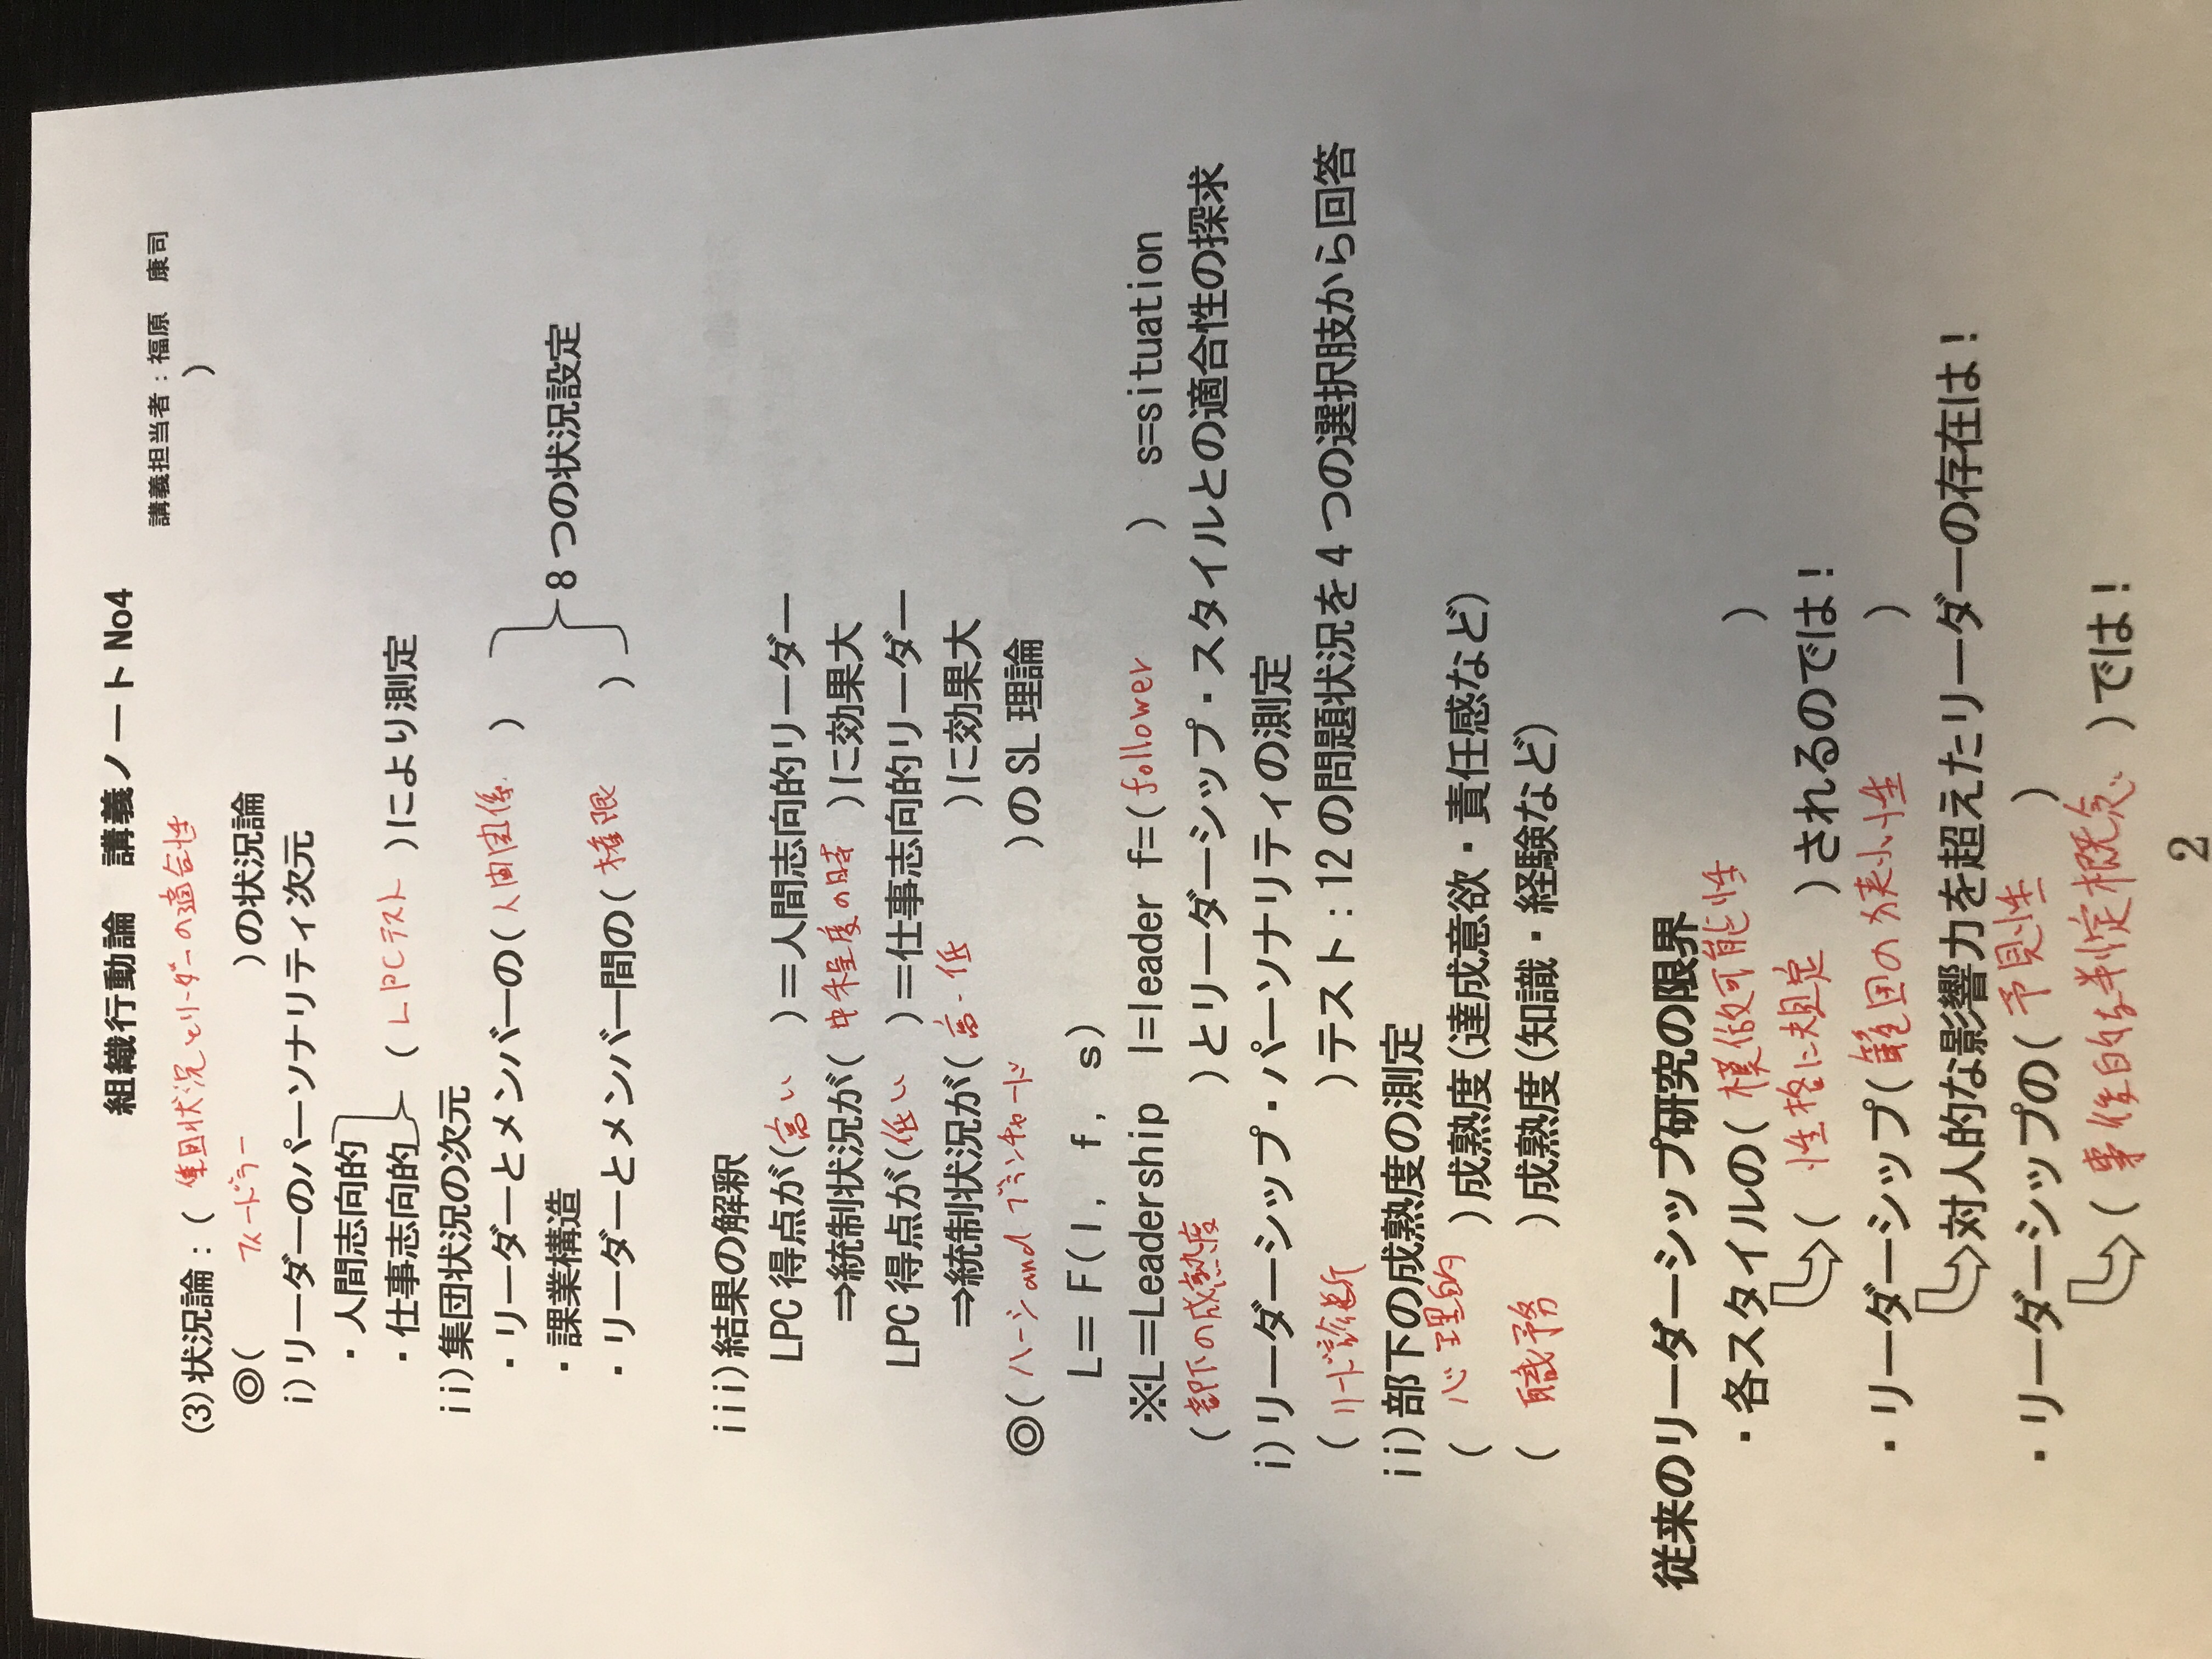 組織行動論　講義ノート No4
講義担当者：福原　康司
(3)状況論：( 集団状況とリーダーの適合性 )
◎( フィードラー )の状況論
i)リーダーのパーソナリティ次元
・人間志向的
・仕事志向的 ( LPCテスト )により測定
ii)集団状況の次元
・リーダーとメンバーの( 人間関係 )
・課業構造 8つの状況設定
・リーダーとメンバー間の( 権限 )
iii)結果の解釈
LPC得点が(高い )＝人間志向的リーダー
⇒統制状況が( 中程度の時 )に効果大
LPC得点が(低い )＝仕事志向的リーダー
⇒統制状況が( 高・低 )に効果大
◎( ハーシ and ブランチャード )のSL理論
L＝ F(l, f, s)
※L＝Leadership l=leader f=( follower ) s=situation
( 部下の成熟度 )とリーダーシップ・スタイルとの適合性の探求
i)リーダーシップ・パーソナリティの測定
( リード診断 )テスト：12の問題状況を4つの選択肢から回答
ii)部下の成熟度の測定
( 心理的 )成熟度(達成意欲・責任感など)
( 職務 )成熟度(知識・経験など)
従来のリーダーシップ研究の限界
・各スタイルの( 模倣可能性 )
( 性格に規定 )されるのでは！
・リーダーシップ( 範囲の狭小性 )
対人的な影響力を超えたリーダーの存在は！
・リーダーシップの( 予見性 )
( 事後的な判定概念 )では！
2